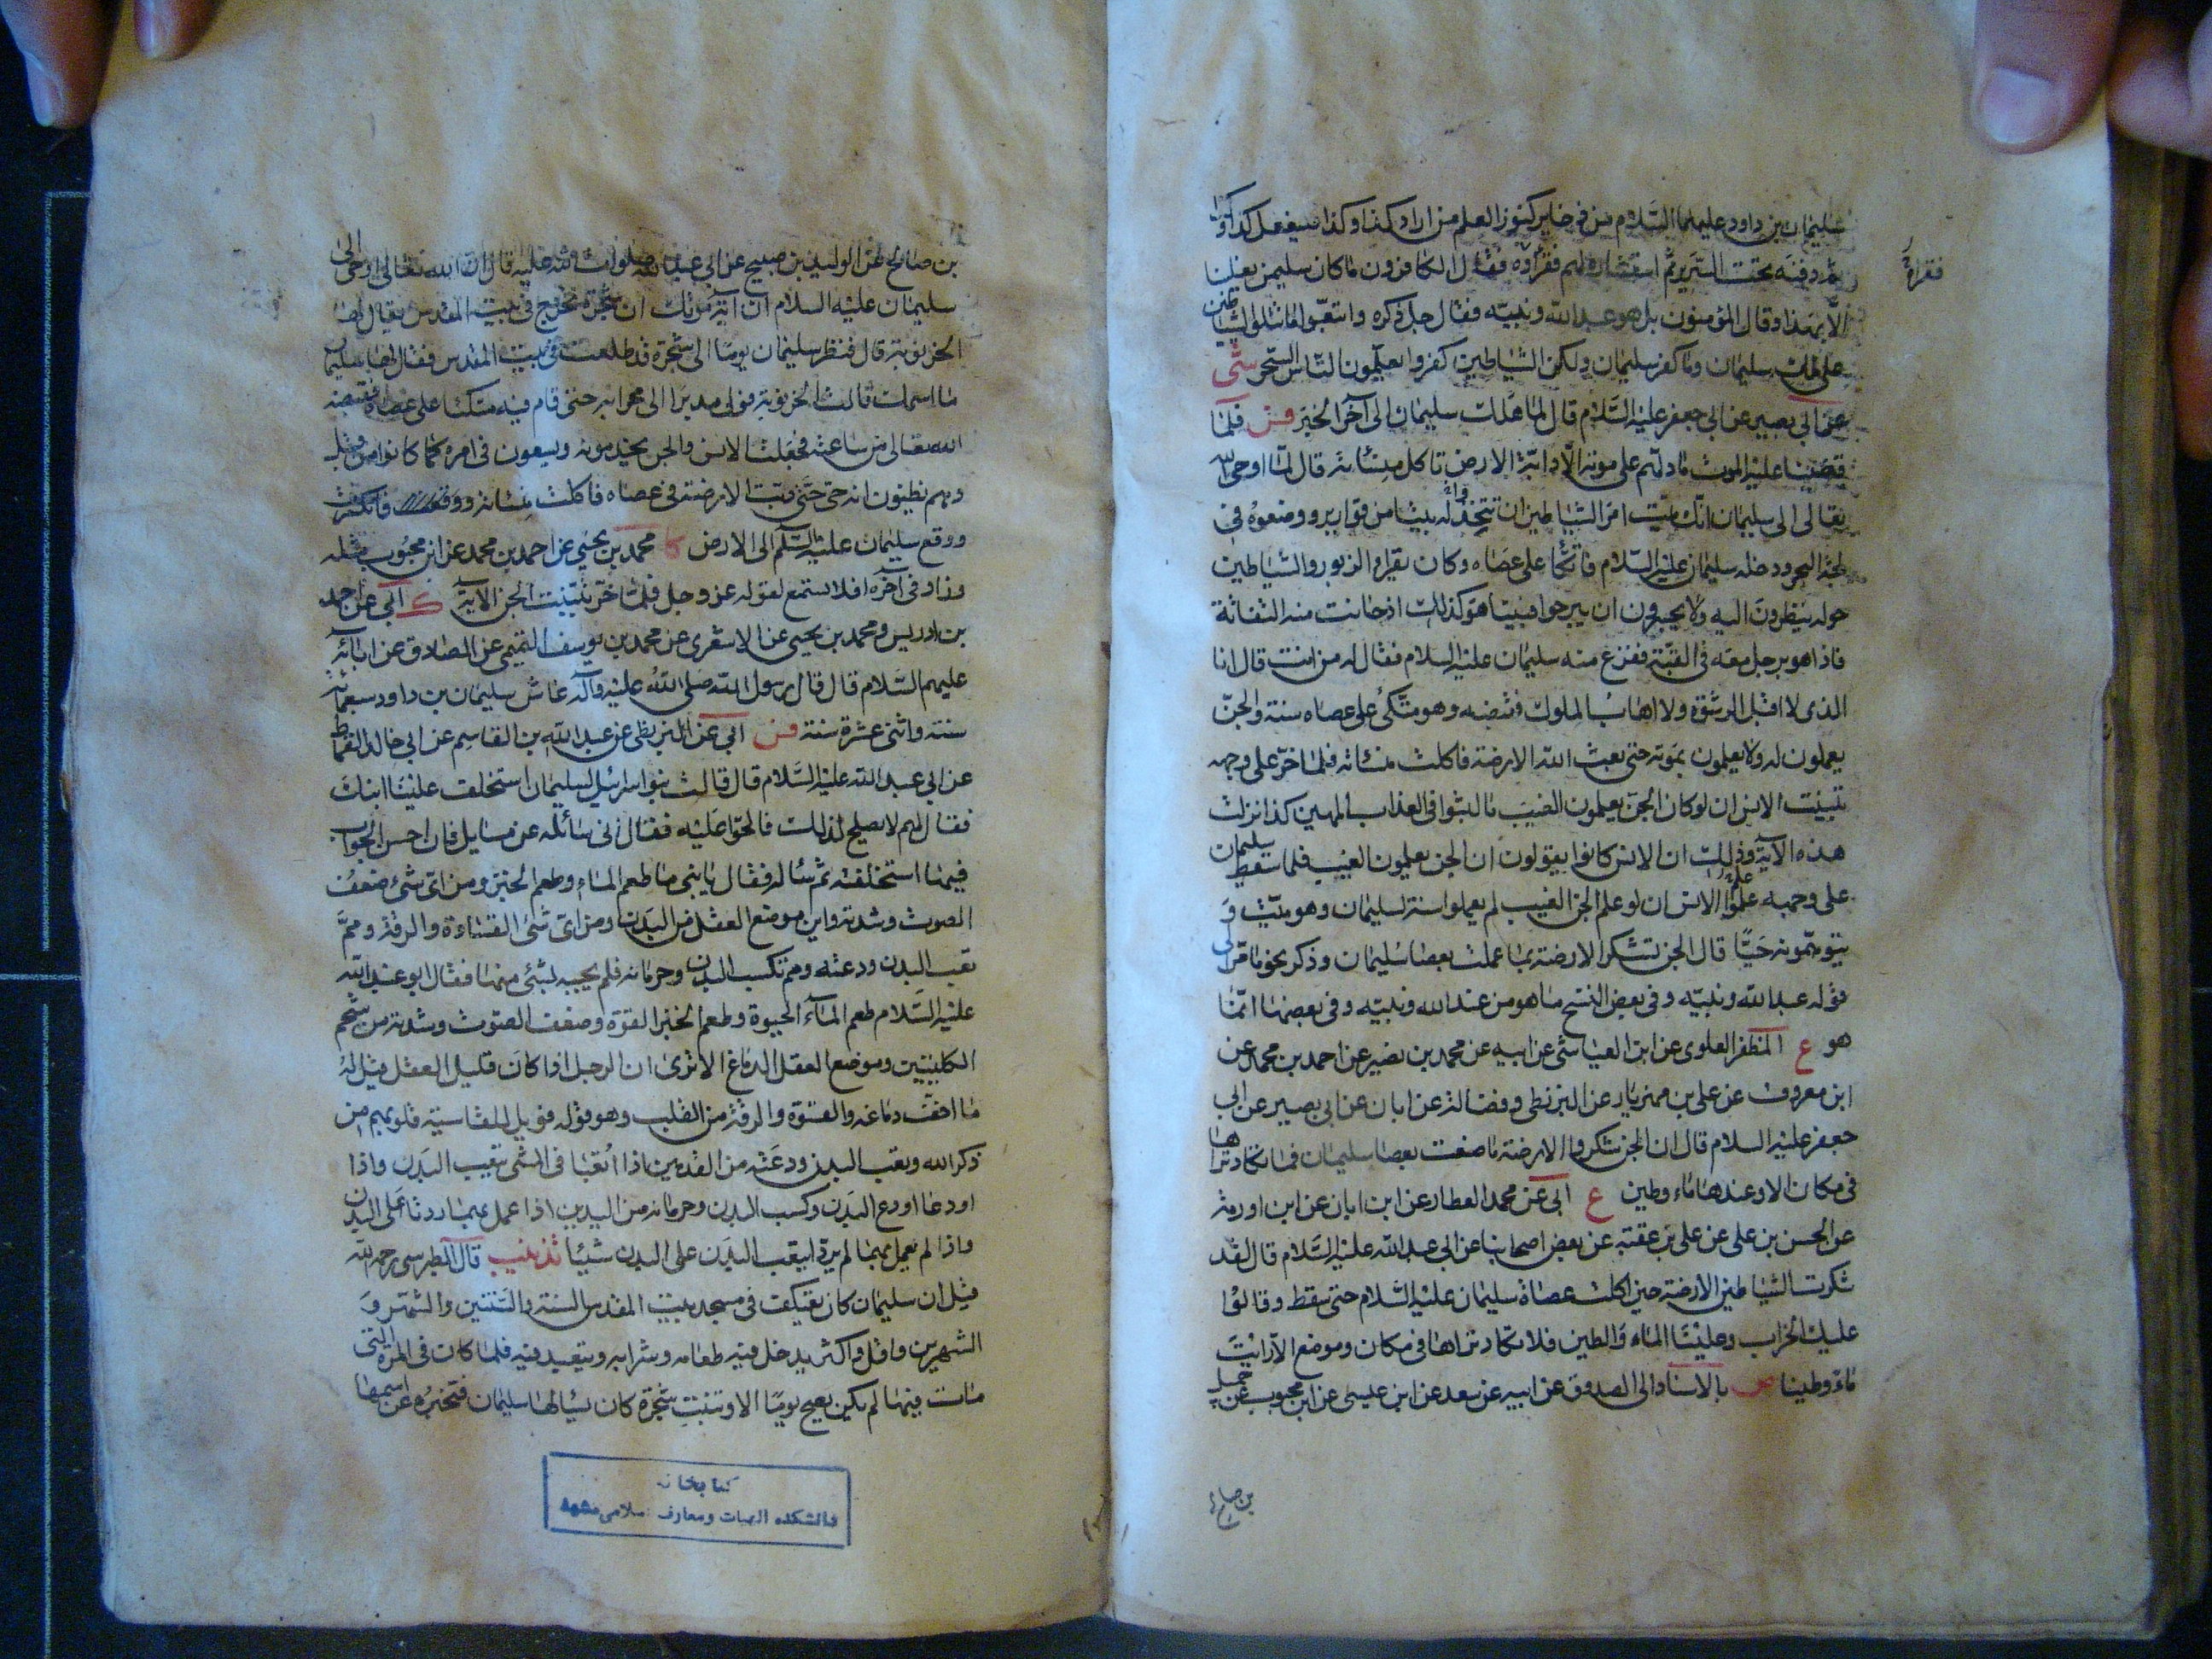 سليمان بن داود عليهما السلام من ذخاير كنوز العلم من اراد كذا وكذا فليفعل كذا وكذا
ثم دفنه تحت السرير ثم استشاره لهم فقرأوه فقال الكافرون ما كان سليمن يغلبنا
فقراه
الا بهذا وقال المؤمنون بل هو عبد الله ونبيه فقال جل ذكره واتبعوا ما تتلوا الشياطين
على ملك سليمان وما كفر سليمان ولكن الشياطين كفروا يعلمون الناس السحر شى
عن ابي بصير عن ابي جعفر عليه السلام قال لما هلك سليمان الى آخر الخبر فس فلما
قضينا عليه الموت ما دلهم على موته الا دابة الارض تاكل منساته قال لما اوحى الله
تعالى الى سليمان انك ميت امر الشياطين ان تتخذ له بيتا من قوارير ووضعوه في
لجة البحر ودخله سليمان عليه السلام فاتكأ على عصاه وكان يقرأ الزبور والشياطين
حوله ينظرون اليه ولا يجسرون ان يبرحوا فبينا هو كذلك اذ حانت منه التفاتة
فاذا هو برجل معه في القبة ففزع منه سليمان عليه السلام فقال له من انت قال انا
الذى لا اقبل الرشوة ولا اهاب الملوك فقبضه وهو متكئ على عصاه سنة والجن
يعملون له ولا يعلمون بموته حتى بعث الله الارضة فاكلت منساته فلما خر على وجهه
تبينت الانس ان لو كان الجن يعلمون الغيب ما لبثوا في العذاب المهين كذا نزلت
هذه الآية وذلك ان الانس كانوا يقولون ان الجن يعلمون الغيب فلما سقط سليمان
على وجهه علموا الانس ان لو علم الجن الغيب لم يعملوا سنة لسليمان وهو ميت و
يتوهمونه حيا قال الجن تشكر الارضة بما عملت بعصا سليمان وذكر نحو ما مر الى
قوله عبد الله ونبيه وفي بعض النسخ ما هو من عند الله ونبيه وفي بعضها انما
هو ع المظفر العلوى عن ابن العياشى عن ابيه عن محمد بن نصير عن احمد بن محمد عن
ابن معروف عن على بن مهزيار عن البزنطى وفضالة عن ابان عن ابى بصير عن ابى
جعفر عليه السلام قال ان الجن شكروا الارضة ما صنعت بعصا سليمان فما تكاد تراها
في مكان الا وعندها ماء وطين ع ابى عن محمد العطار عن ابن ابان عن ابن اورمة
عن الحسن بن على عن على بن عقبة عن بعض اصحابنا عن ابى عبد الله عليه السلام قال لقد
شكرت الشياطين الارضة حين اكلت عصاة سليمان عليه السلام حتى سقط وقالوا
عليك الخراب وعلينا الماء والطين فلا تكاد تراها في مكان وموضع الا رايت
ماء وطينا ص بالاسناد الى الصدوق عن ابيه عن سعد عن ابن عيسى عن ابن محبوب عن جميل
بن صالح
بن صالح عن الوليد بن صبيح عن ابى عبد الله صلوات الله عليه قال ان الله تعالى اوحى الى
سليمان عليه السلام ان آية موتك ان شجرة تخرج في بيت المقدس يقال لها
الخرنوبة قال فنظر سليمان يوما الى شجرة قد طلعت في بيت المقدس فقال لها سليمان
ما اسمك قالت الخرنوبة فولى مدبرا الى محرابه حتى قام فيه متكئا على عصاه فقبضه
الله تعالى من ساعته فجعلت الانس والجن يخدمونه ويسعون في امره كما كانوا من قبل
وهم يظنون انه حى حتى دبت الارضة في عصاه فاكلت منساته ووقعت فانكسرت
ووقع سليمان عليه السلم الى الارض كا محمد بن يحيى عن احمد بن محمد عن ابن محبوب مثله
وزاد في آخره افلا تسمع لقوله عز وجل فلما خر تبينت الجن الآية ك ابى عن احمد
بن ادريس ومحمد بن يحيى عن الاشعرى عن محمد بن يوسف التميمى عن الصادق عن ابائه
عليهم السلام قال قال رسول الله صلى الله عليه وآله عاش سليمان بن داود سبعمائة
سنة واثنى عشرة سنة فس ابى عن البزنطى عن عبد الله بن القاسم عن ابى خالد القماط
عن ابى عبد الله عليه السلام قال قالت بنو اسرئيل لسليمان استخلف علينا ابنك
فقال لهم لا يصلح لذلك فالحوا عليه فقال انى سائله عن مسايل فان احسن الجواب
فيها استخلفته ثم سأله فقال يا بنى ما طعم الماء وطعم الخبز ومن اى شئ ضعف
الصوت وشدته واين موضع العقل من البدن ومن اى شئ القساوة والرقة ومم
تعب البدن ودعته ومم تكسب البدن وحرمانه فلم يجبه بشئ منها فقال ابو عبد الله
عليه السلام طعم الماء الحيوة وطعم الخبز القوة وضعف الصوت وشدته من شحم
الكليتين وموضع العقل الدماغ الا ترى ان الرجل اذا كان قليل العقل قيل له
ما اخف دماغه والقسوة والرقة من القلب وهو قوله فويل للقاسية قلوبهم من
ذكر الله وتعب البدن ودعته من القدمين اذا اتعبا في المشى يتعب البدن واذا
اودعا اودع البدن وكسب البدن وحرمانه من اليدين اذا عمل بهما ردتا على البدن
واذا لم يعمل بهما لم يردا بتعب البدن على البدن شيئا تذنيب قال الطبرسى رحمه الله
قيل ان سليمان كان يعتكف في مسجد بيت المقدس السنة والسنتين والشهر و
الشهرين واقل واكثر يدخل فيه طعامه وشرابه ويتعبد فيه فلما كان في المرة التى
مات فيها لم يكن يصبح يوما الا وتنبت شجرة كان يسألها سليمان فتخبره عن اسمها
كتابخانه
دانشكده الهيات ومعارف اسلامى مشهد